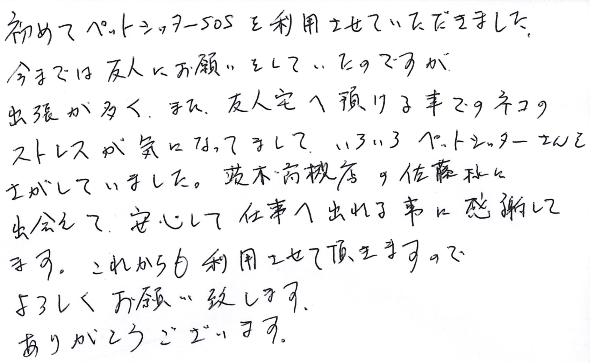 初めてペットシッターSOSを利用させていただきました。
今までは友人にお願いをしていたのですが
出張が多く、また、友人宅へ預ける事でのネコの
ストレスが気になってまして、いろいろペットシッターさんを
さがしていました。茨木・高槻店の佐藤様に
出会えて、安心して仕事へ出れる事に感謝して
ます。これからも利用させて頂きますので
よろしくお願い致します。
ありがとうございます。